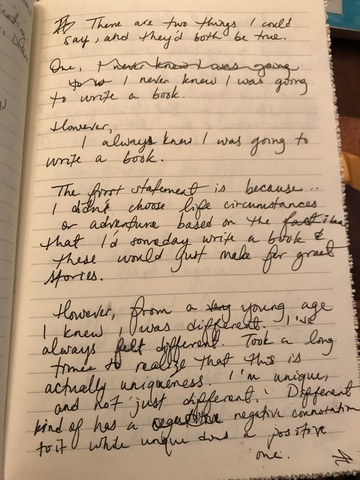 There are two things I could
say, and they'd both be true.
One, I never knew I was going
to wr I never knew I was going
to write a book.
However,
I always knew I was going to
write a book.
The first statement is because..
I didn't choose life circumstances
or adventure based on the fact idea
that I'd someday write a book &
these would just make for great
stories.
However, from a very young age
I knew I was different. I've
always felt different. Took a long
time to realize that this is
actually uniqueness. I'm unique,
and not 'just different'. Different
kind of has a negative negative connotation
to it while unique does a positive
one.